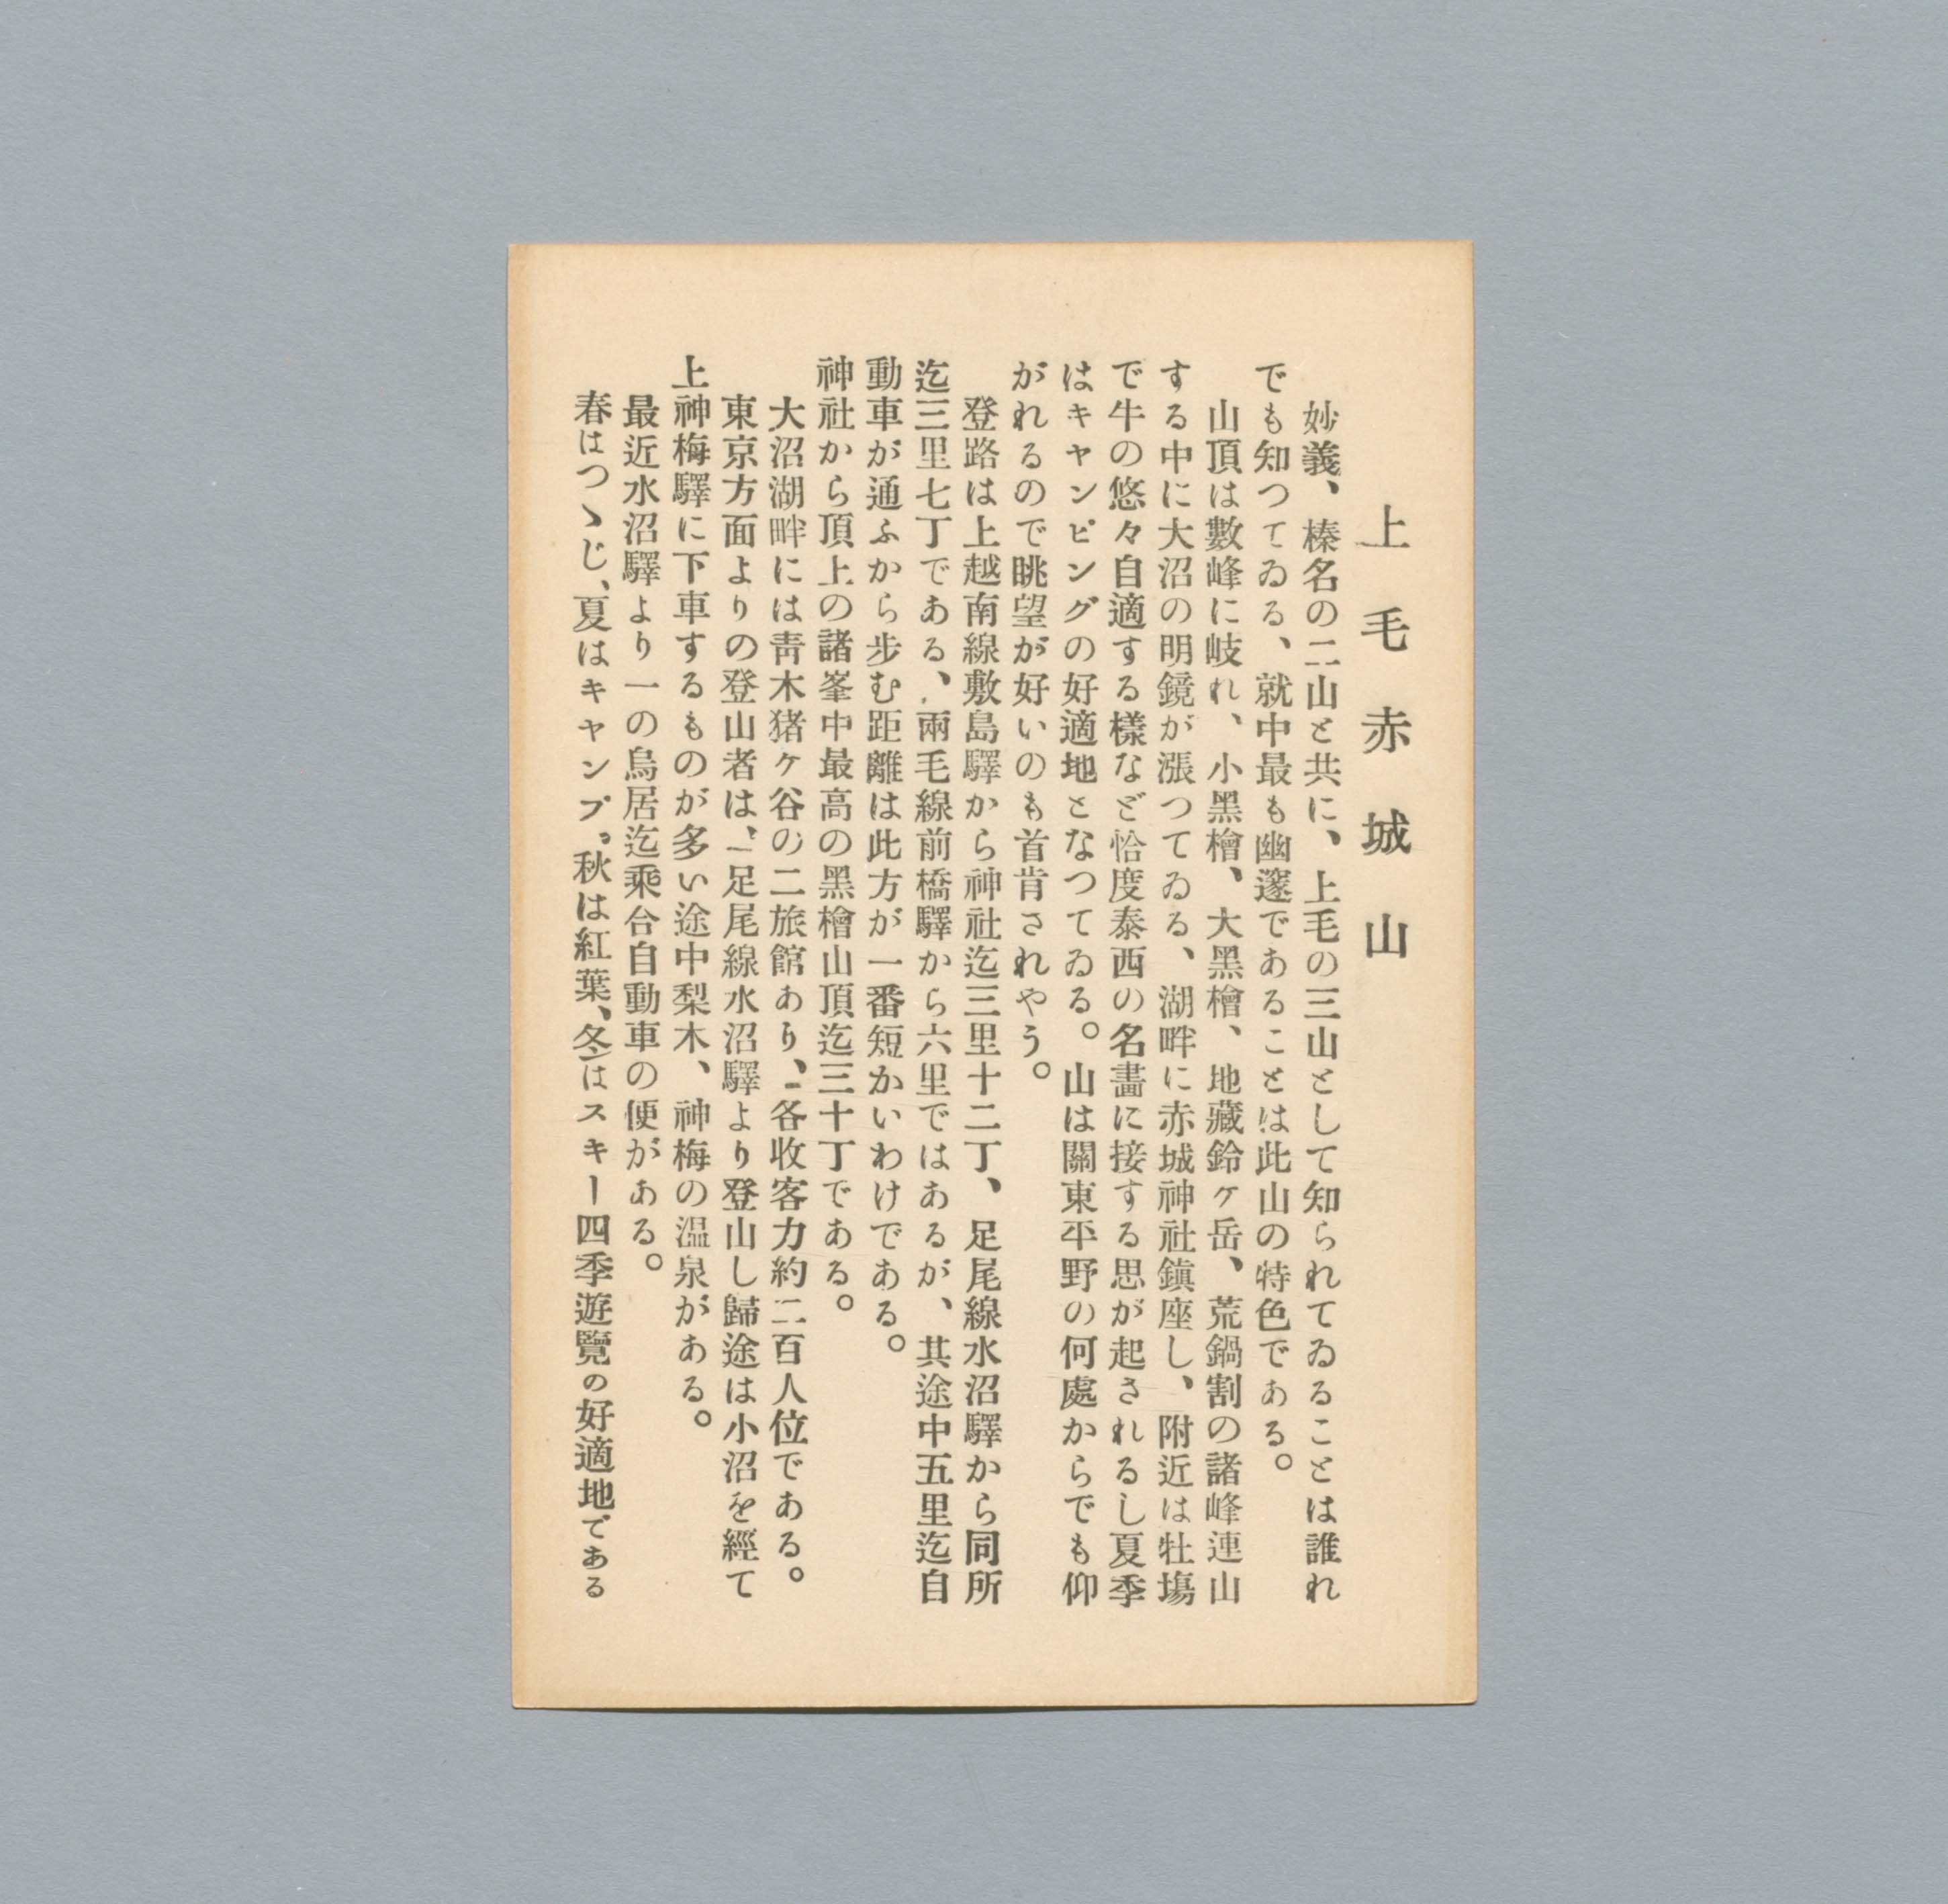 上毛赤城山
妙義、榛名の二山と共に、上毛の三山として知られてゐることは誰れ
でも知つてゐる、就中最も幽邃であることは此山の特色である。
山頂は數峰に岐れ、小黑檜、大黑檜、地藏鈴ヶ岳、荒鍋割の諸峰連山
する中に大沼の明鏡が漲つてゐる、湖畔に赤城神社鎭座し、附近は牡塲
で牛の悠々自適する樣など恰度泰西の名畵に接する思が起されるし夏季
はキャンピングの好適地となつてゐる。山は關東平野の何處からでも仰
がれるので眺望が好いのも首肯されやう。
登路は上越南線敷島驛から神社迄三里十二丁、足尾線水沼驛から同所
迄三里七丁である、兩毛線前橋驛から六里ではあるが、其途中五里迄自
動車が通ふから步む距離は此方が一番短かいわけである。
神社から頂上の諸峯中最高の黑檜山頂迄三十丁である。
大沼湖畔には靑木猪ヶ谷の二旅館あり、各收客力約二百人位である。
東京方面よりの登山者は、足尾線水沼驛より登山し歸途は小沼を經て
上神梅驛に下車するものが多い途中梨木、神梅の温泉がある。
最近水沼驛より一の鳥居迄乘合自動車の便がある。
春はつゝじ、夏はキャンプ。秋は紅葉、冬はスキー四季遊覽の好適地である